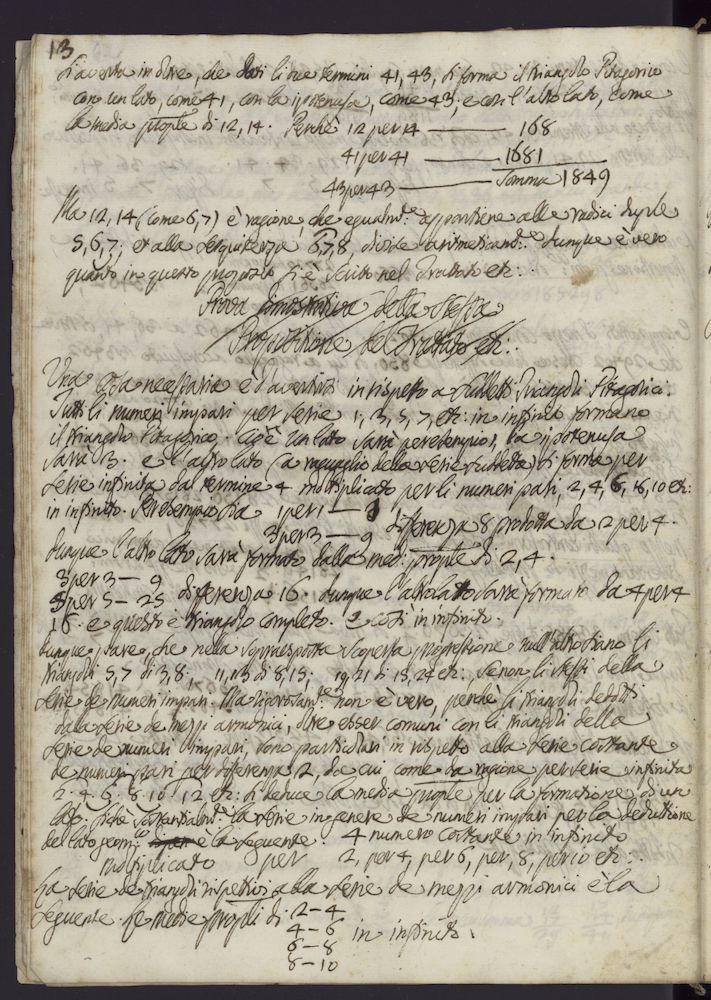 13
Si averta inoltre, che dati li due termini 41, 43, si forma il triangolo Pitagorico
con un lato, come 41, con la ipotenusa, come 43; e con l'altro lato, come
la media prople di 12, 14. Perchè 12 per 14 — 168
41 per 41 — 1681
43 per 43 — Somma 1849
Ma 12, 14 (come 6, 7) è ragione, che egualmte appartiene alle radici duple
5, 6, 7; et alla sesquiterza 6, 7, 8, divise aritmeticamte dunque è vero
quanto in questo proposito si è scritto nel Trattato etc:.
Prova dimostrativa della stessa
Proposizione del Trattato etc:.
Una cosa necessaria è d'avertirsi in rispetto a suddetti Triangoli Pitagorici.
Tutti li numeri impari per serie 1, 3, 5, 7, etc: in infinito formano
il triangolo Pitagorico. Cioè un lato sarà per esempio 1, la ipotenusa
sarà 3. e l'altro lato (a ragguaglio della serie suddetta) si forma per
serie infinita dal termine 4 moltiplicato per li numeri pari, 2, 4, 6, 8, 10 etc:
in infinito. Per esempio sia 1 per 1 — 1
3 per 3 — 9 differenza 8 prodotta da 2 per 4.
dunque l'altro lato sarà formato dalla med: prople di 2, 4.
3 per 3 — 9
5 per 5 — 25 differenza 16. dunque l'altro lato sarà formato da 4 per 4
16. e questo è triangolo completo. E così in infinito.
dunque pare, che nella soprasposta scoperta progressione null'altro siano li
triangoli 5, 7 di 3, 8; 11, 13 di 8, 15; 19, 21 di 15, 24 etc:, se non li stessi della
serie de numeri impari. Ma rigorosamte non è vero, perchè li triangoli dedotti
dalla serie de mezzi armonici, oltre esser comuni con li triangoli della
serie de numeri impari, sono particolari in rispetto alla serie costante
de numeri pari per differenza 2, da cui come da ragione per serie infinita
2. 4. 6. 8. 10. 12 etc: si deduce la media prople per la formazione di un
lato. Sichè sostanzialmte la serie in genere de numeri impari per la deduzione
del lato geomco è la seguente. 4 numero costante in infinito
moltiplicato per 2, per 4, per 6, per 8, per 10 etc:.
La serie de triangoli rispettivi alla serie de mezzi armonici è la
seguente. Le medie propli di 2 — 4
4 — 6
6 — 8 in infinito.
8 — 10